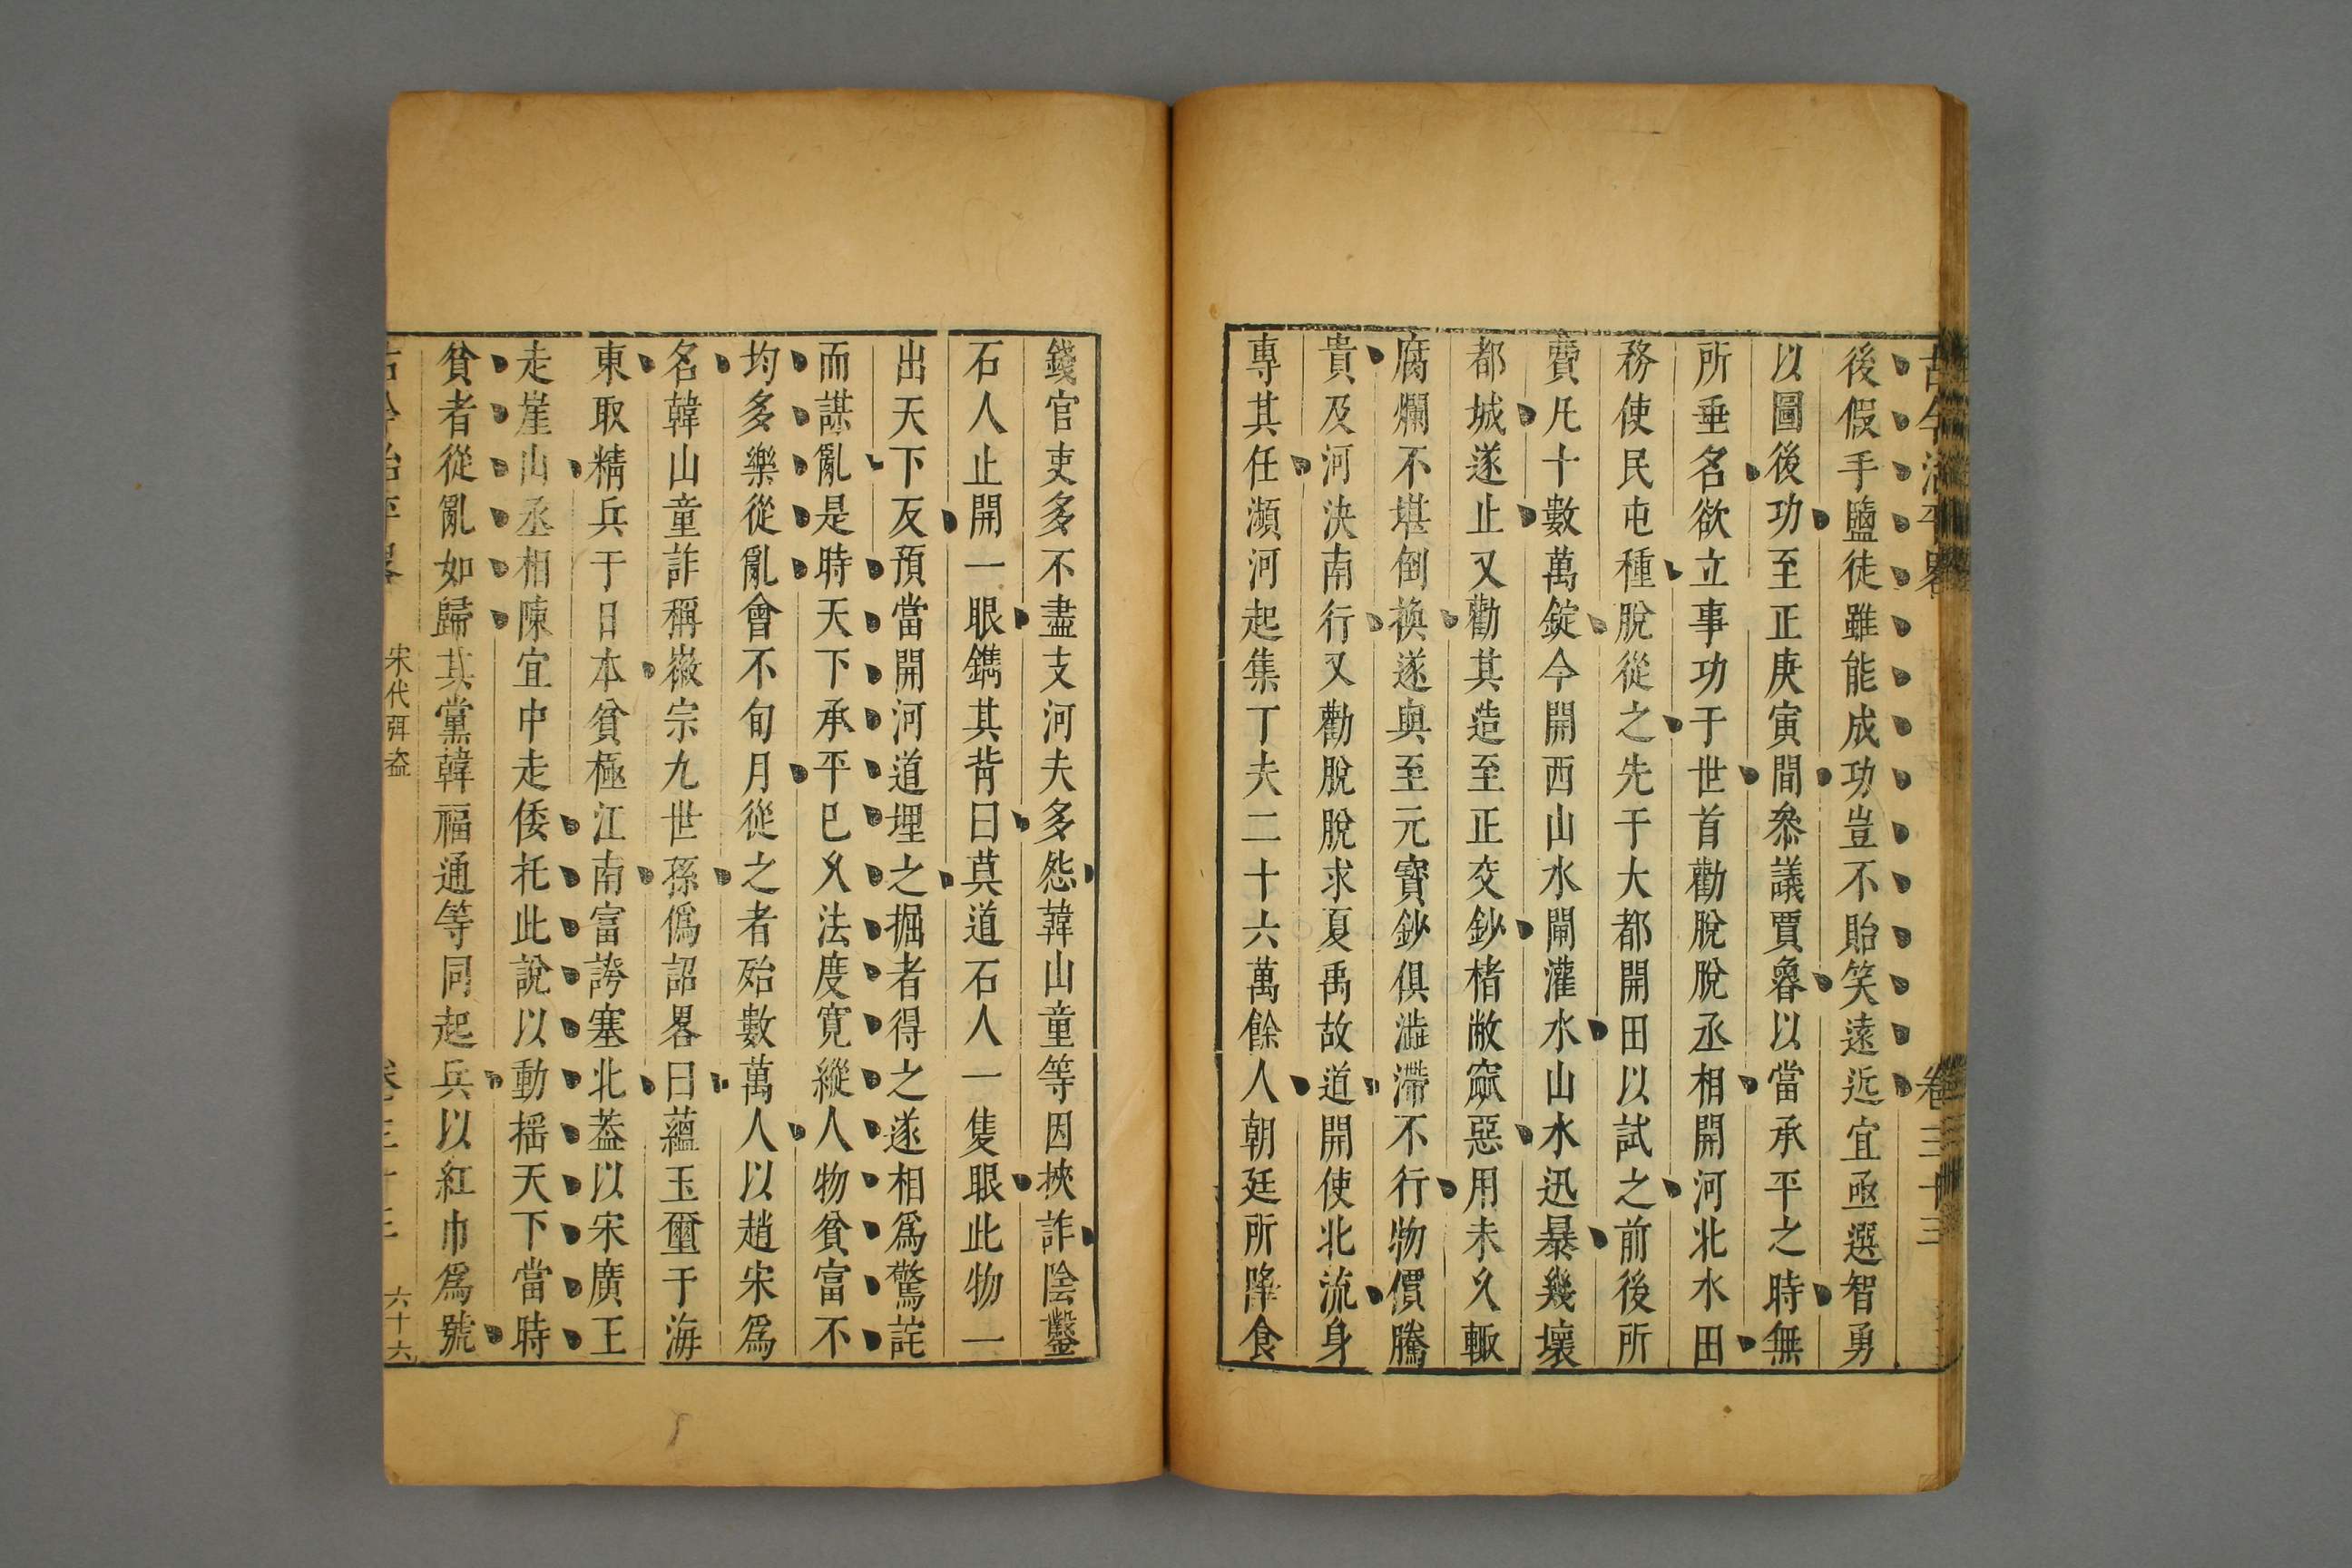 古今治平畧 卷三十三
後假手鹽徒雖能成功豈不貽笑遠近宜亟選智勇
以圖後功至正庚寅間叅議賈魯以當承平之時無
所垂名欲立事功于世首勸脫脫丞相開河北水田
務使民屯種脫從之先于大都開田以試之前後所
費凡十數萬錠今開西山水閘灌水山水迅暴幾壞
都城遂止又勸其造至正交鈔楮敝窳惡用未久輙
腐爛不堪倒換遂與至元寶鈔俱澁滯不行物價騰
貴及河決南行又勸脫脫求夏禹故道開使北流身
專其任瀕河起集丁夫二十六萬餘人朝廷所降食
錢官吏多不盡支河夫多怨韓山童等因挾詐陰鑿
石人止開一眼鐫其背曰莫道石人一隻眼此物一
出天下反預當開河道埋之掘者得之遂相爲驚詫
而謀亂是時天下承平已久法度寛縱人物貧富不
均多樂從亂會不旬月從之者殆數萬人以趙宋爲
名韓山童詐稱徽宗九世孫僞詔畧曰蘊玉璽于海
東取精兵于日本貧極江南富誇塞北葢以宋廣王
走崖山丞相陳宜中走倭托此說以動搖天下當時
貧者從亂如歸其黨韓福通等同起兵以紅巾爲號
古今治平畧 宋代弭盗 卷三十三 六十六